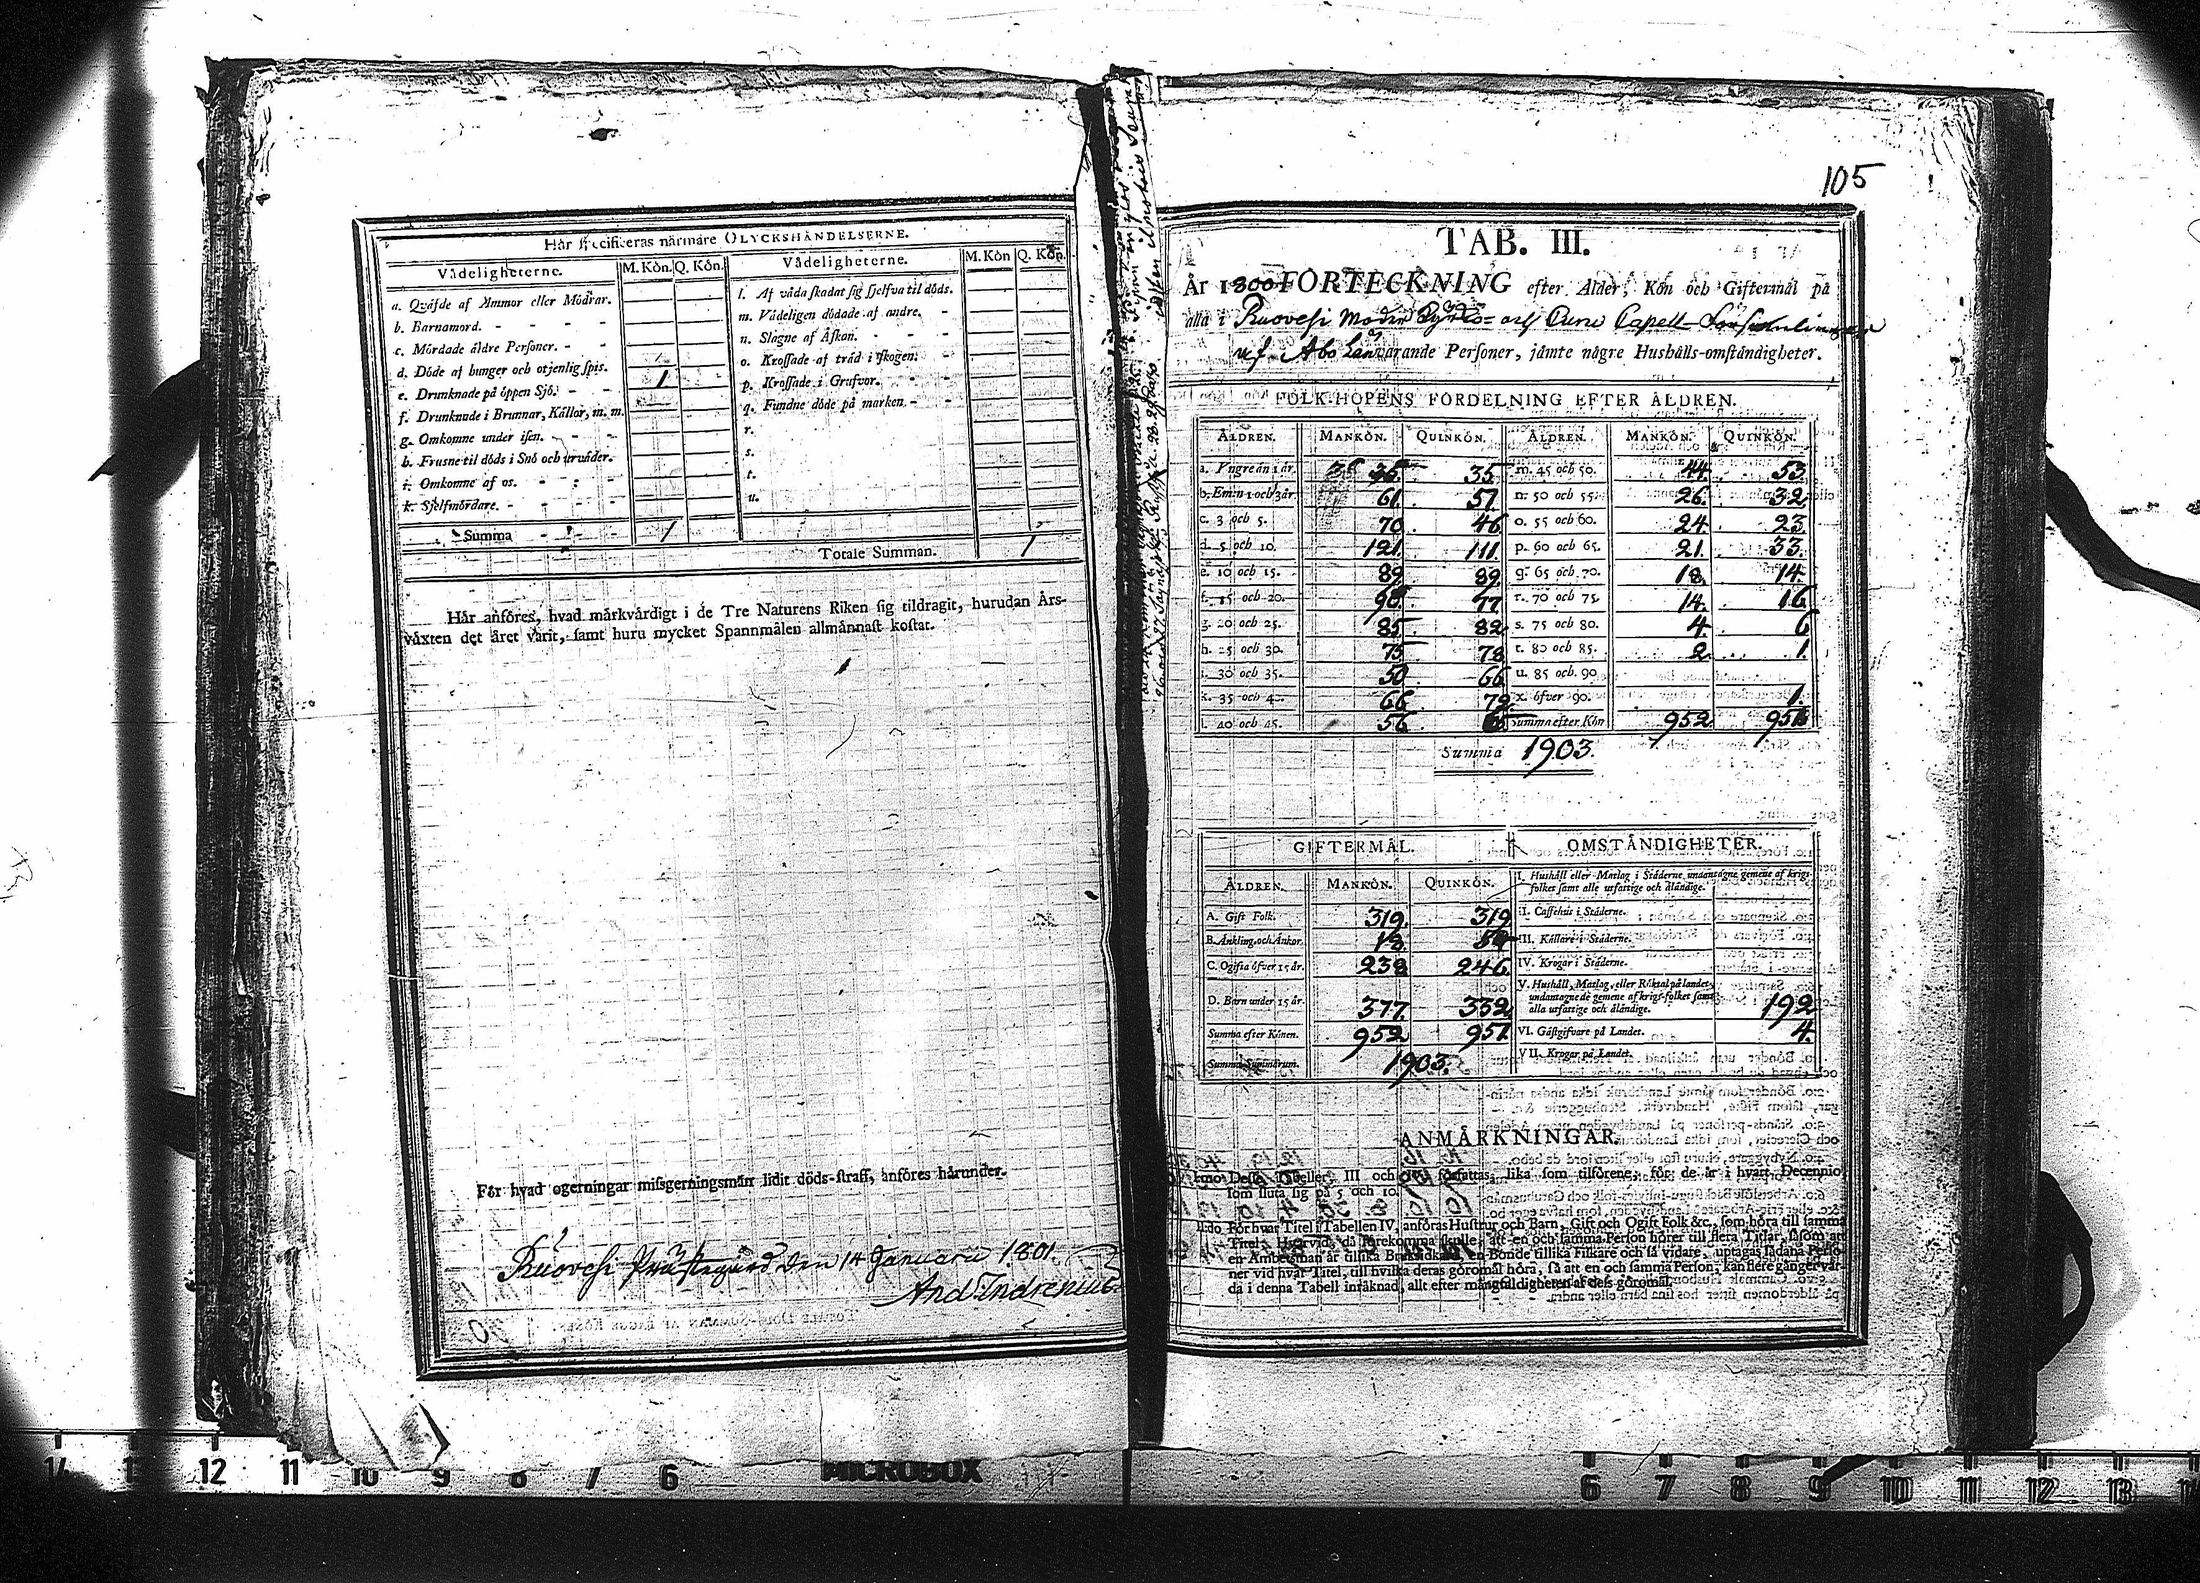 Här specificeras närmare OLYCKSHÄNDELSERNE.
Vådeligheterne. M. Kön. Q. Kön. Vådeligheterne. M. Kön Q. Kön.
a. Qväfde af Ammor eller Mödrar. l. Af våda skadat sig sjelfva til döds.
b. Barnamord. m. Vådeligen dödade af andre.
c. Mördade äldre Personer. n. Slagne af Åskan.
d. Döde af hunger och otjenlig spis. o. Krossade af träd i skogen.
e. Drunknade på öppen Sjö. 1 p. Krossade i Grufvor.
f. Drunknade i Brunnar, Källor, m. m. q. Fundne döde på marken.
g. Omkomne under isen. r.
h. Frusne til döds i Snö och urväder. s.
i. Omkomne af os. t.
k. Sjelfmördare. u.
Summa 1
Totale Summan. 1
Här anföres, hvad märkvärdigt i de Tre Naturens Riken sig tildragit, hurudan Års-
växten det året varit, samt huru mycket Spannmålen allmännast kostat.
För hvad ogerningar missgerningsmän lidit döds-straff, anföres härunder.
Ruovesi Prästegård den 14 Januarii 1801.
And. Indrenius
105
TAB. III.
År 1800 FÖRTECKNING efter Ålder, Kön och Giftermål på
alla i Ruovesi Moder Kyrko- och Curu Capell-Församlingar
uf Åbo Län varande Personer, jämte någre Hushålls-omständigheter.
FOLK-HOPENS FÖRDELNING EFTER ÅLDREN.
ÅLDREN. MANKÖN. QUINKÖN. ÅLDREN. MANKÖN. QUINKÖN.
a. Yngre än 1 år. 35. 35. m. 45 och 50. 44. 53.
b. Emln 1 och 3 år 61. 57. n. 50 och 55. 26. 32.
c. 3 och 5. 70. 46 o. 55 och 60. 24. 23.
d. 5 och 10. 121. 111. p. 60 och 65. 21. 33.
e. 10 och 15. 89. 89. q. 65 och 70. 18. 14.
f. 15 och 20. 98. 77 r. 70 och 75. 14. 16.
g. 20 och 25. 85. 82. s. 75 och 80. 4. 6
h. 25 och 30. 75 78. t. 80 och 85. 2. 1.
i. 30 och 35. 50 66 u. 85 och 90
k. 35 och 40. 66 72. x. öfver 90. 1.
l. 40 och 45. 56 Summa efter Kön 952. 951.
Summa 1903.
GIFTERMÅL. OMSTÄNDIGHETER.
ÅLDREN. MANKÖN. QUINKÖN. I. Hushåll eller Matlag i Städerne, undantagne gemene af krigs-
folket samt alle utfattige och åländige.
A. Gift Folk. 319. 319. II. Caffehus i Städerne.
B. Änkling. och Änkor. 18. 54 III. Källare i Städerne.
C. Ogifta öfver 15 år. 238. 246. IV. Krogar i Städerne.
D. Barn under 15 år. 377. 332. V. Hushåll, Matlag, eller Röktal på landet,
undantagne de gemene af krigs-folket samt
alla utfattige och åländige. 192
Summa efter Könen. 952. 951. VI. Gästgifvare på Landet. 4.
Summa Summarum. 1903. VII. Krogar på Landet.
ANMÄRKNINGAR.
I:mo Desse Tabeller III och författas, lika som tilförene, för de år i hvart Decennio,
som sluta sig på 5 och 10.
II:do För hvar Titel i Tabellen IV, anföras Hustrur och Barn, Gift och Ogift Folk &c., som höra till samma
Titel. Hvarvid, då förekomma skulle, att en och samma Person hörer till flera Titlar, såsom att
en Ämbetsman är tillika Bruksidkare, en Bonde tillika Fiskare och så vidare, uptages sådana Perso-
ner vid hvar Titel, till hvilka deras göromål höra, så att en och samma Person, kan flere gånger var-
da i denna Tabell inräknad, allt efter mångfaldigheten af dess göromål.
MICROBOX